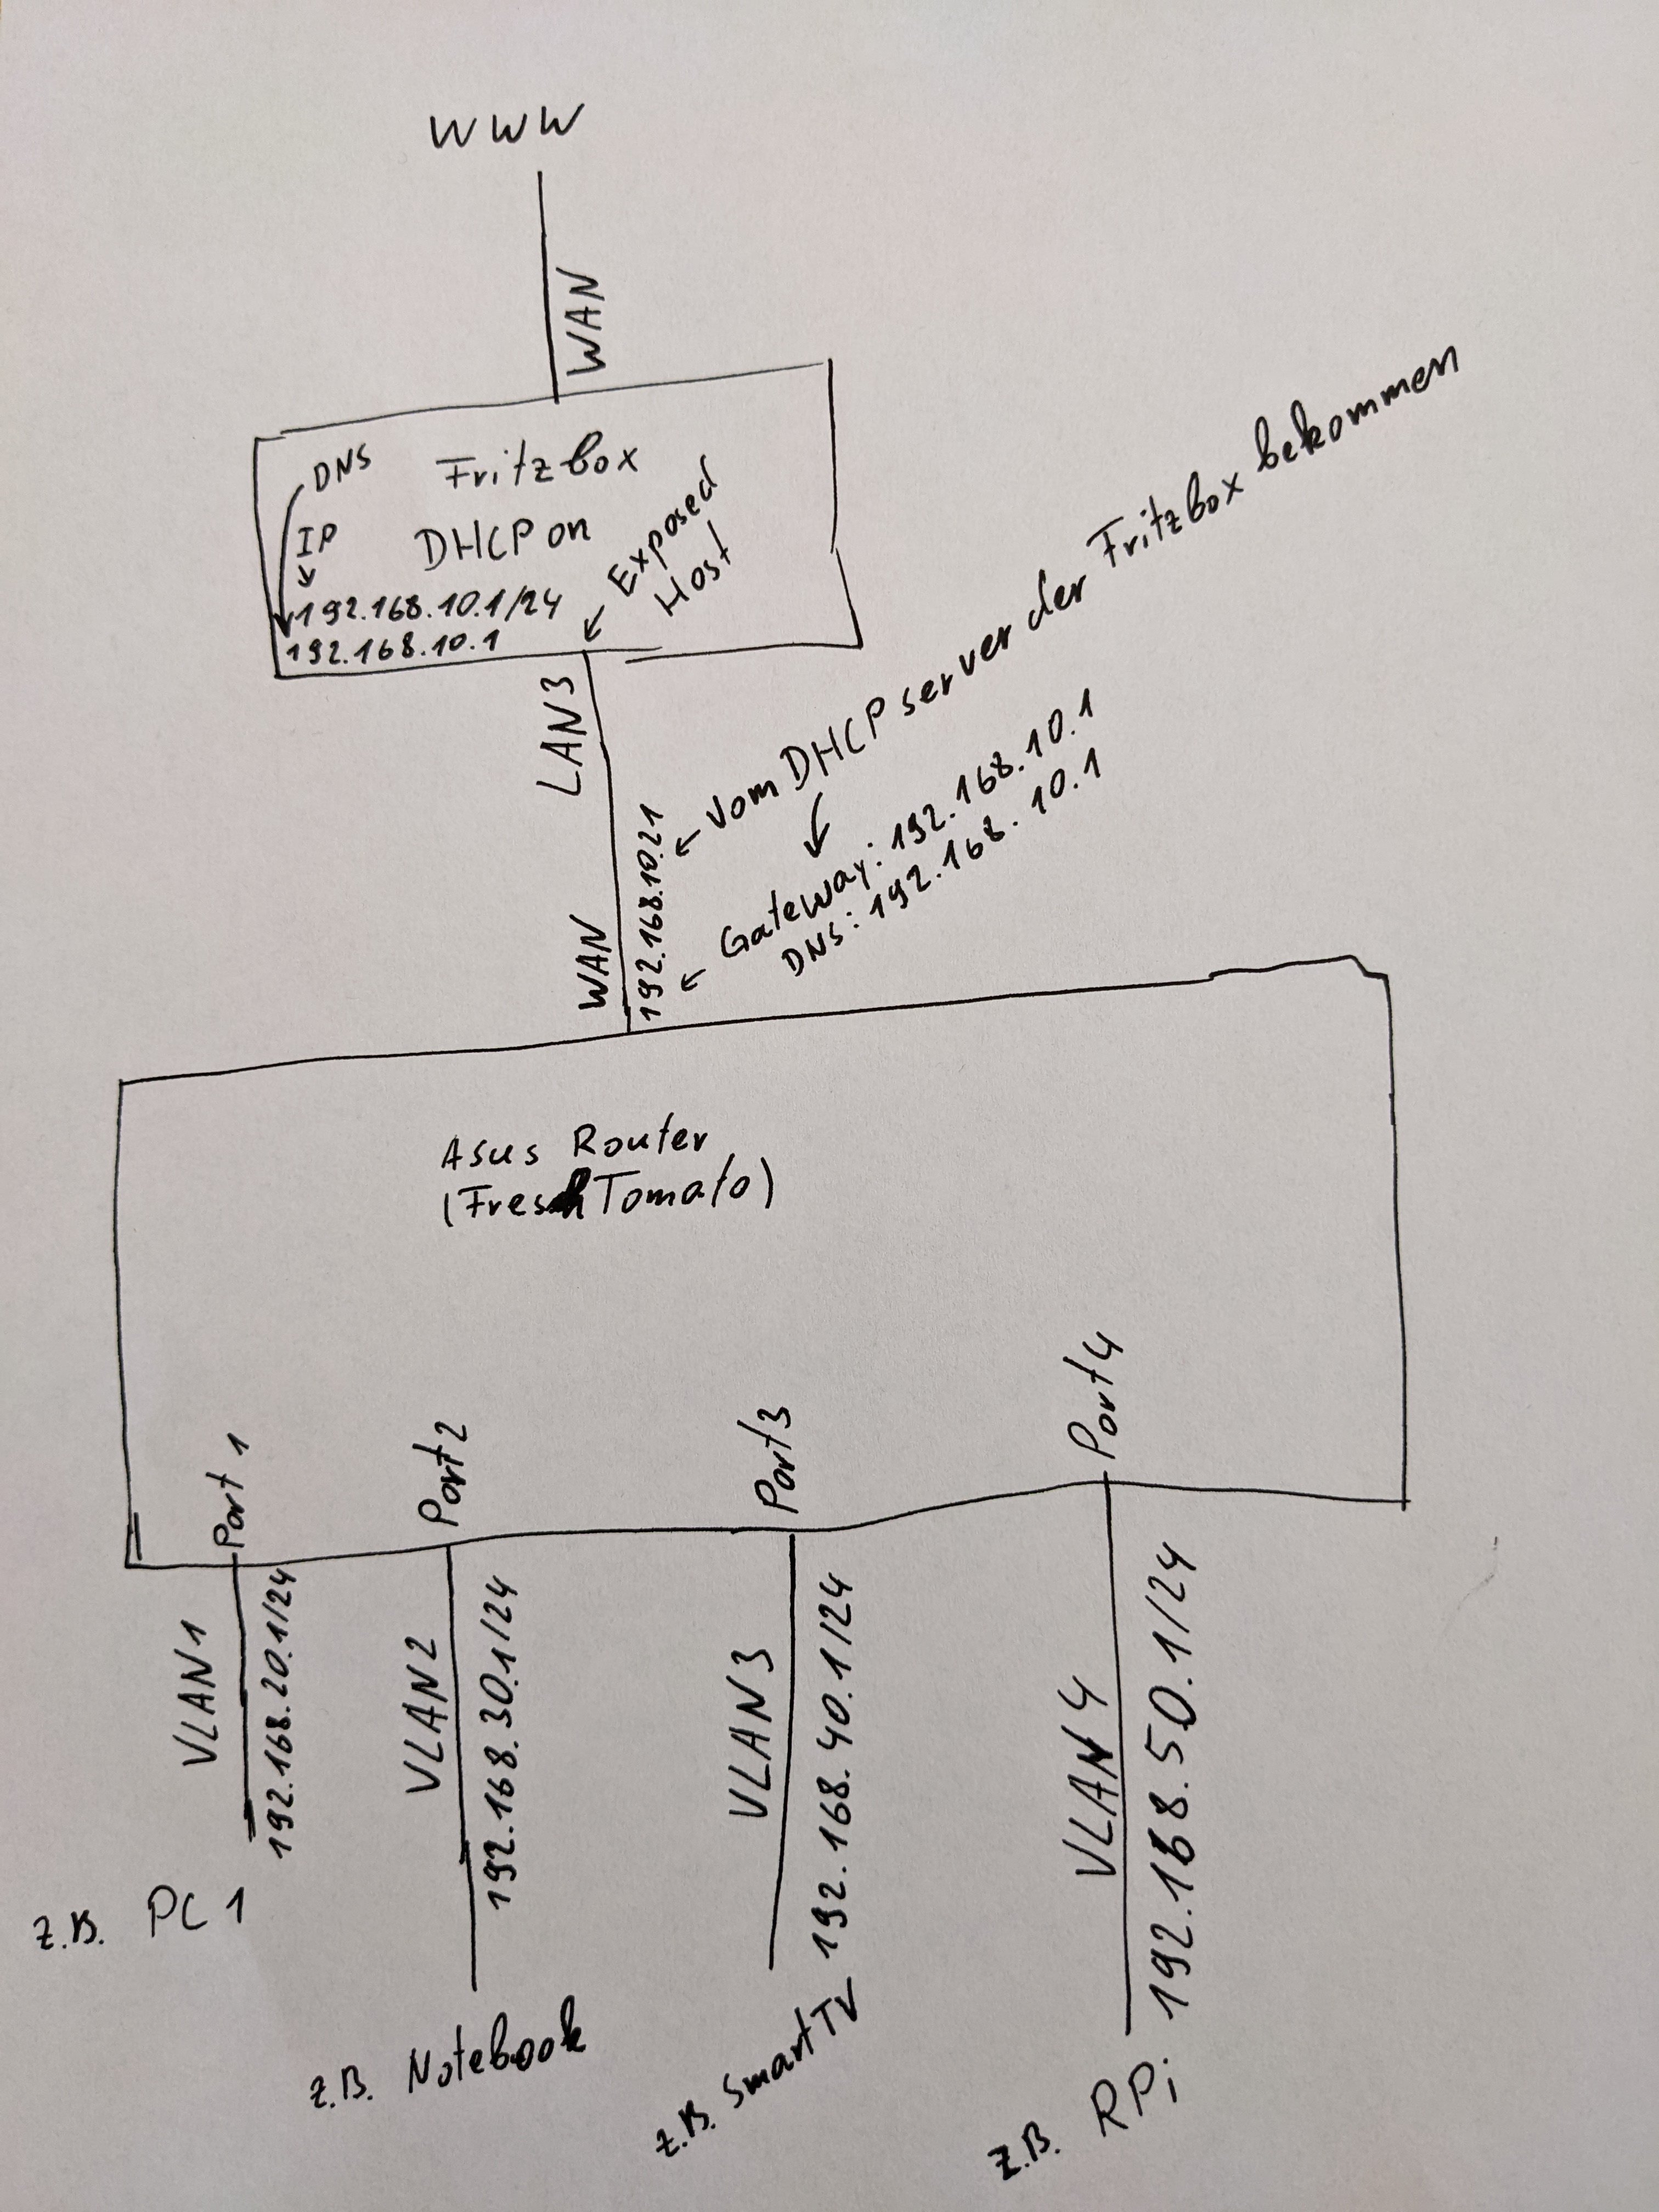 WWW
WAN
DNS
Fritzbox
IP
DHCP on
Exposed
Host
192.168.10.1/24
192.168.10.1
LAN3
vom DHCP server der Fritzbox bekommen
192.168.10.21
WAN
Gateway: 192.168.10.1
DNS: 192.168.10.1
Asus Router
(FreshTomato)
Port 1
Port2
Port3
Port4
VLAN1
192.168.20.1/24
VLAN2
192.168.30.1/24
VLAN3
192.168.40.1/24
VLAN4
192.168.50.1/24
z.B. PC1
z.B. Notebook
z.B. SmartTV
z.B. RPi